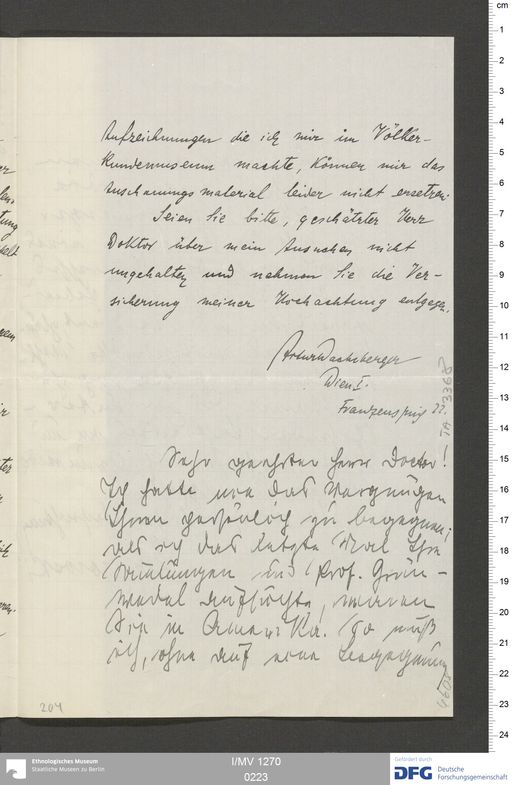 Aufzeichnungen die ich mir im Völker-
kundemuseum machte, können mir das
Anschauungsmaterial leider nicht ersetzen.
Seien Sie bitte, geschätzter Herr
Doktor über mein Ansuchen nicht
ungehalten und nehmen Sie die Ver-
sicherung meiner Hochachtung entgegen.
Artur Wachsberger
Wien I.
Franzensring 22.
TA 3368
Sehr geehrter Herr Doctor!
Ich hatte nie das Vergnügen
Ihnen persönlich zu begegnen;
als ich das letzte Mal Ihre
Sammlungen und Prof. Grün-
wedel aufsuchte, waren
Sie in Amerika. So muß
ich, ohne auf eine Begegnung
204
cm
1
2
3
4
5
6
7
8
9
10
11
12
13
14
15
16
17
18
19
20
21
22
23
24
Ethnologisches Museum
Staatliche Museen zu Berlin
I/MV 1270
0223
Gefördert durch
DFG
Deutsche
Forschungsgemeinschaft